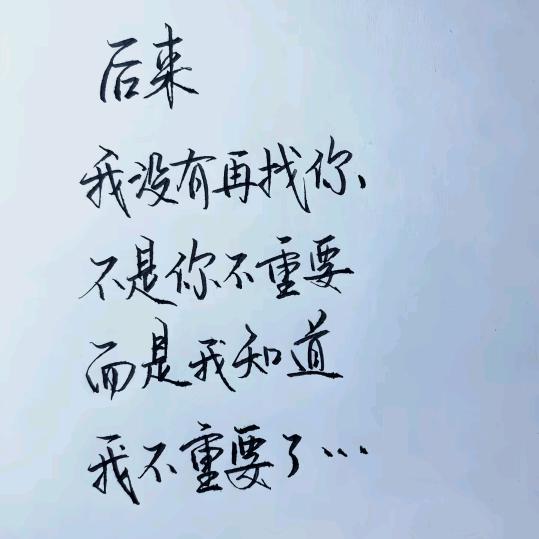 后来
我没有再找你、
不是你不重要
而是我知道
我不重要了…